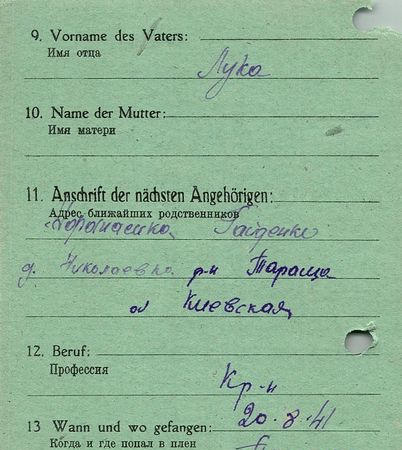 9. Vorname des Vaters:
Имя отца
Лука
10. Name der Mutter:
Имя матери
11. Anschrift der nächsten Angehörigen:
Адрес ближайших родственников
Гайденко
д. Николаевка р-н Тараща
об Киевская
12. Beruf:
Профессия
Кр-н
13 Wann und wo gefangen:
20-8-41
Когда и где попал в плен